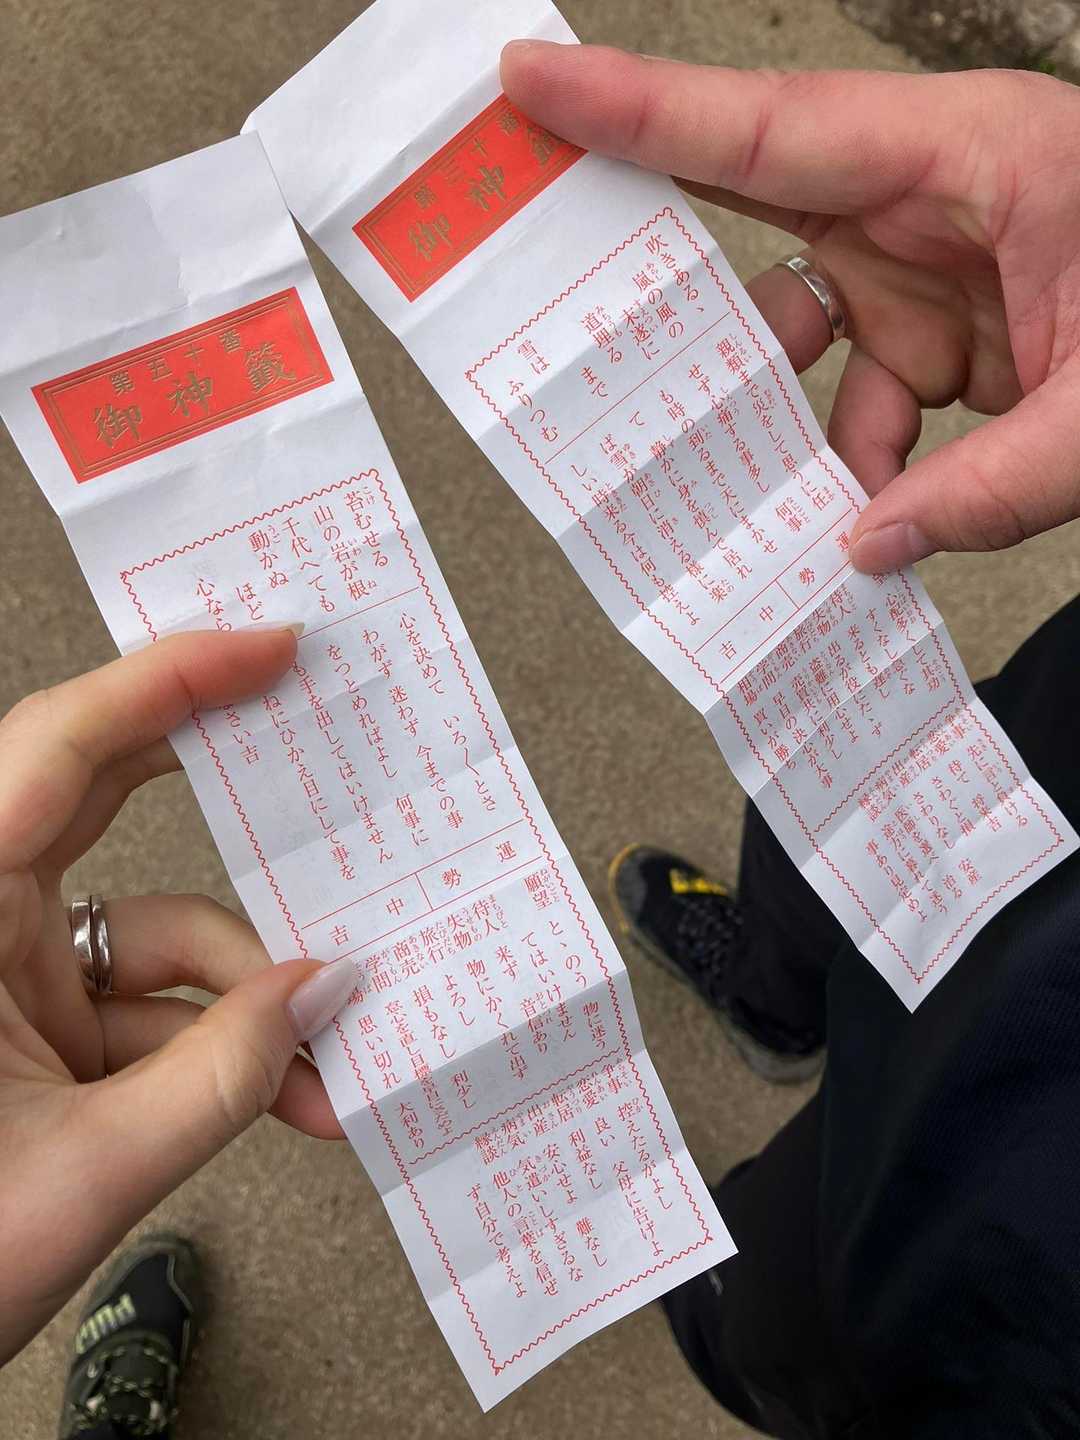 第五十番
御神籤
苔むせる
山の岩が根
千代へても
動かぬ
ほど
心なら
心を決めて いろ〳〵とさ
わがず 迷わず 今までの事
をつとめればよし 何事に
も手を出してはいけません
ねにひかえ目にして事を
さい吉
運勢
中吉
願望 とゝのう 物に迷う
てはいけません
待人 来ず 音信あり
失物 物にかくれて出ず
旅行 よろし
商売 損もなし 利少し
学問
場 思い切れ 大利あり
争事 控えたるがよし
恋愛 良い 父母に告げよ
転居 利益なし
出産 安心せよ 難なし
病気 気遣いしすぎるな
縁談 他人の言葉を信ぜ
ず自分で考えよ
第三十番
御神籤
吹きある、
嵐の風の
末遂に
道理る
まで
雪は
ふりつむ
親類まで災をして思に任
せず心痛する事多し 何事
も時の到るまで天にまかせ
て 静かに身を慎んで居れ
ば雪が朝日に消える様に楽
しい時来る今は何も控えよ
運勢
中吉
心配多くして其功
すくなし
待人 来る
失物
旅行
商売
争事
恋愛 待て
転居 さわりなし
出産 安産
病気 医師を選べ 治る
縁談